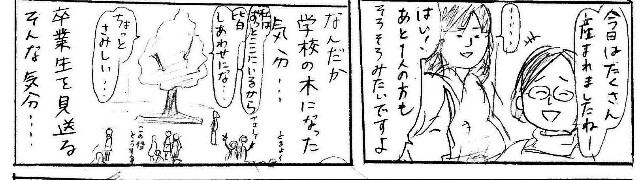 今日はたくさん
産まれましたねー
‥‥
はい！
あと1人の方も
そろそろみたいですよ
なんだか
学校の木になった
気分‥‥
私は
ずっとここにいるから
皆
しあわせにな‥
ちょっと
さみしい‥‥
卒業生を見送る
そんな気分‥‥